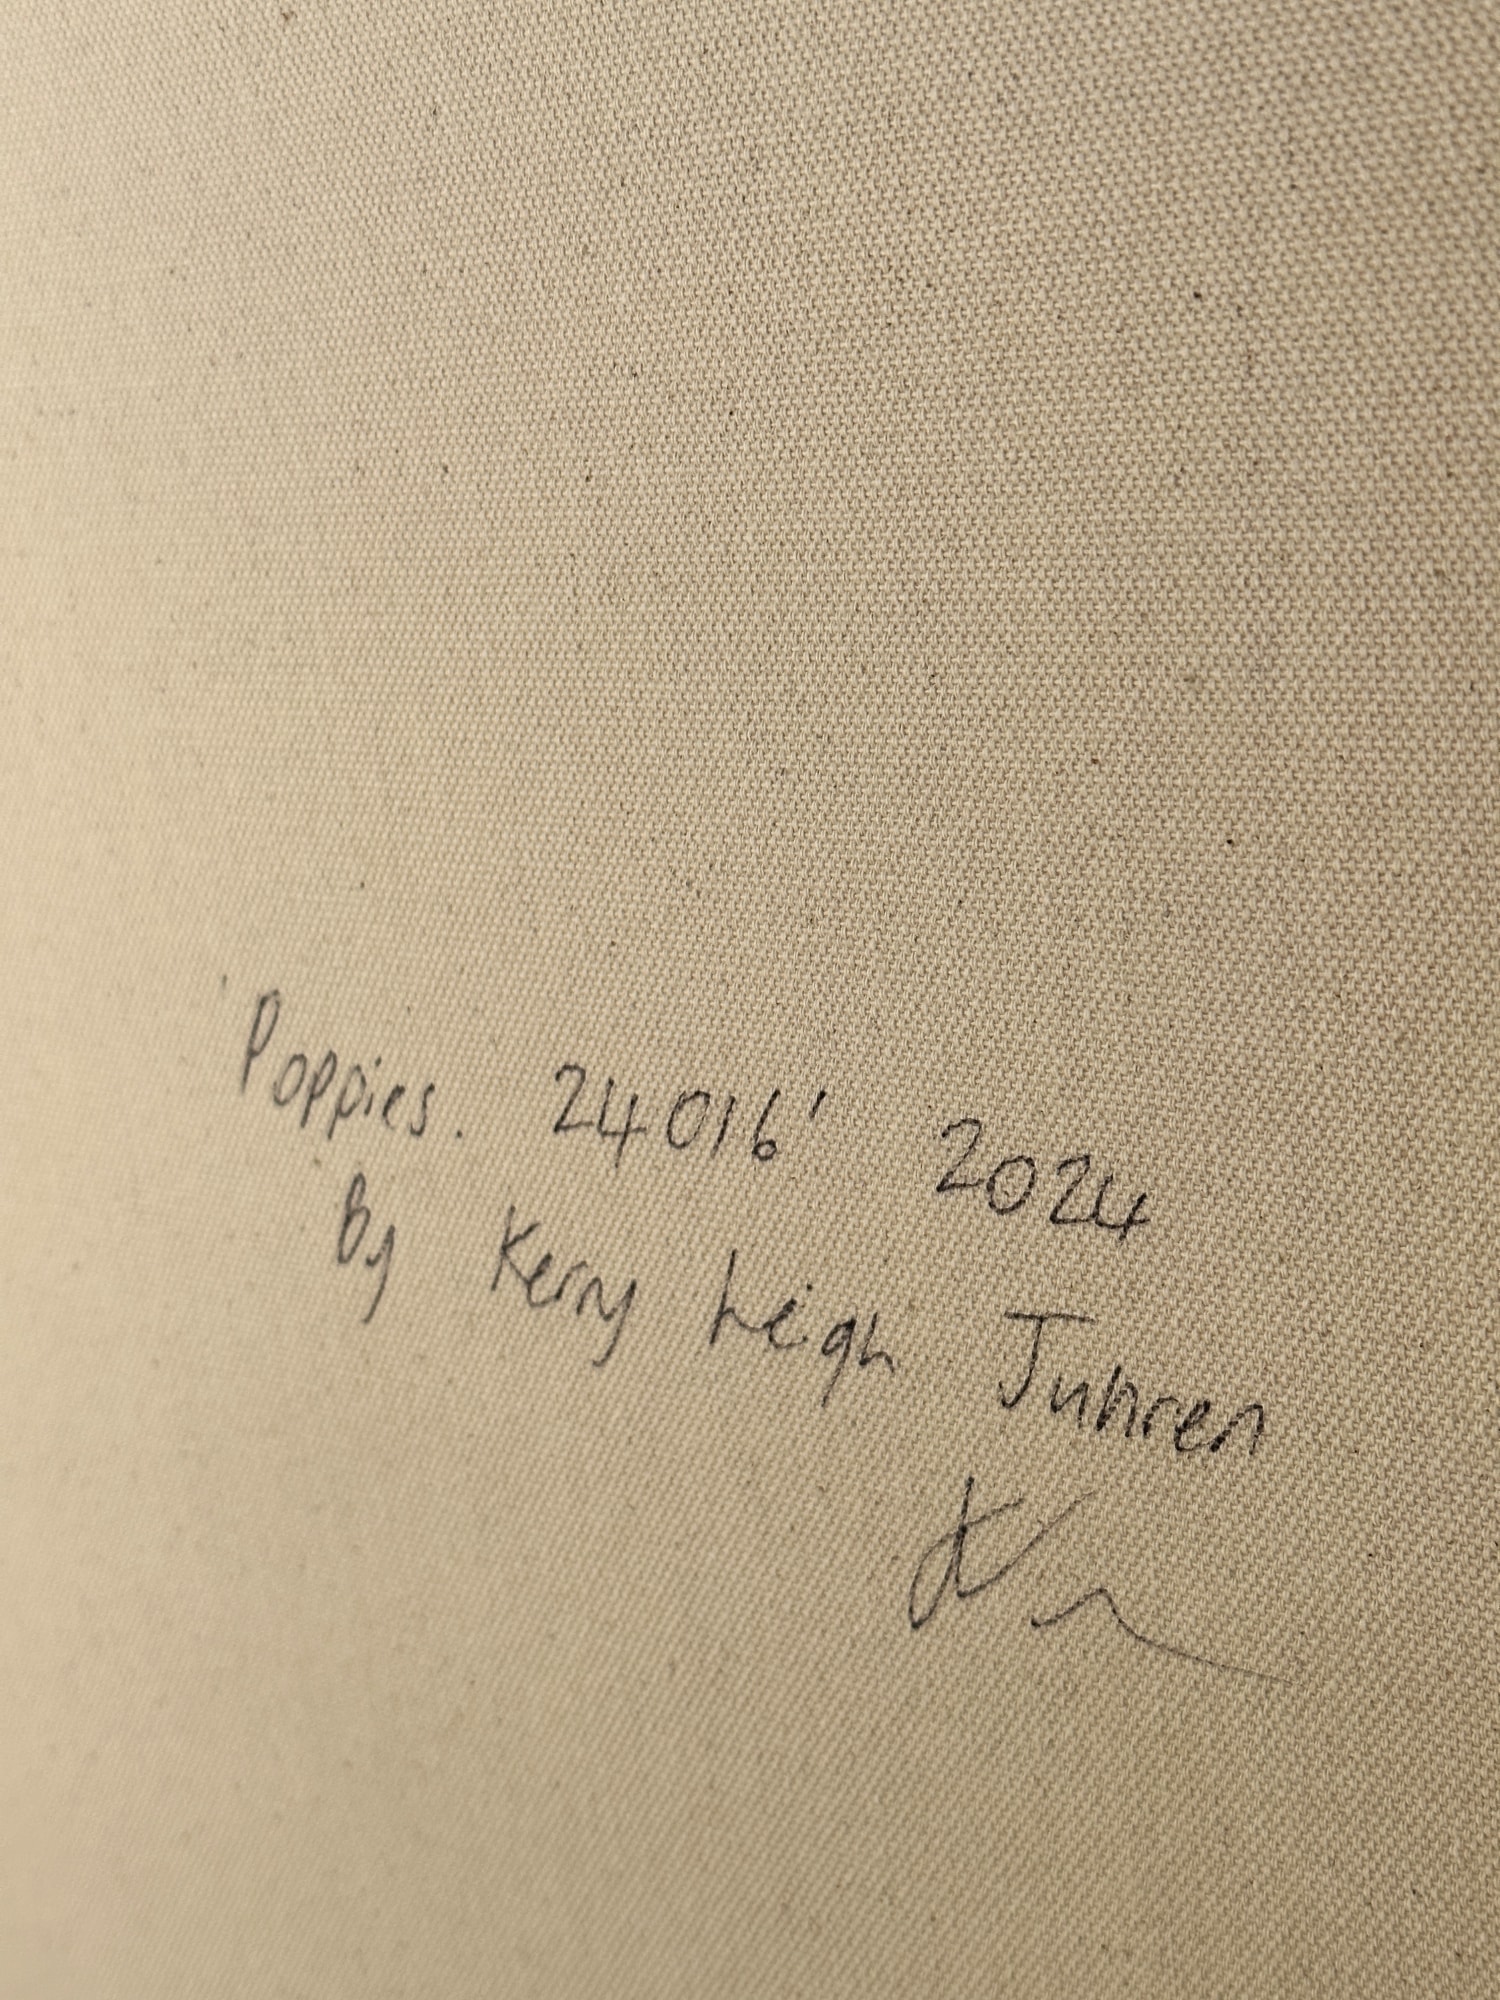 'Poppies. 24016' 2024
By Kerry Leigh Juhren